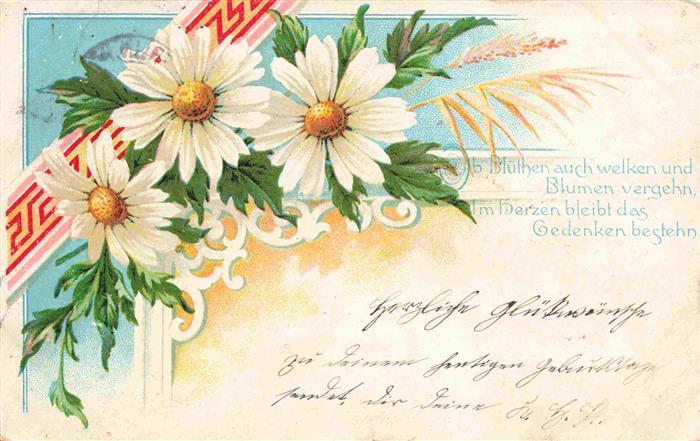 Ob Blüthen auch welken und
Blumen vergehn
Im Herzen bleibt das
Gedenken bestehn
Herzliche Glükwünsche
zu deinem heutigen Geburtstage
sendet dir deine